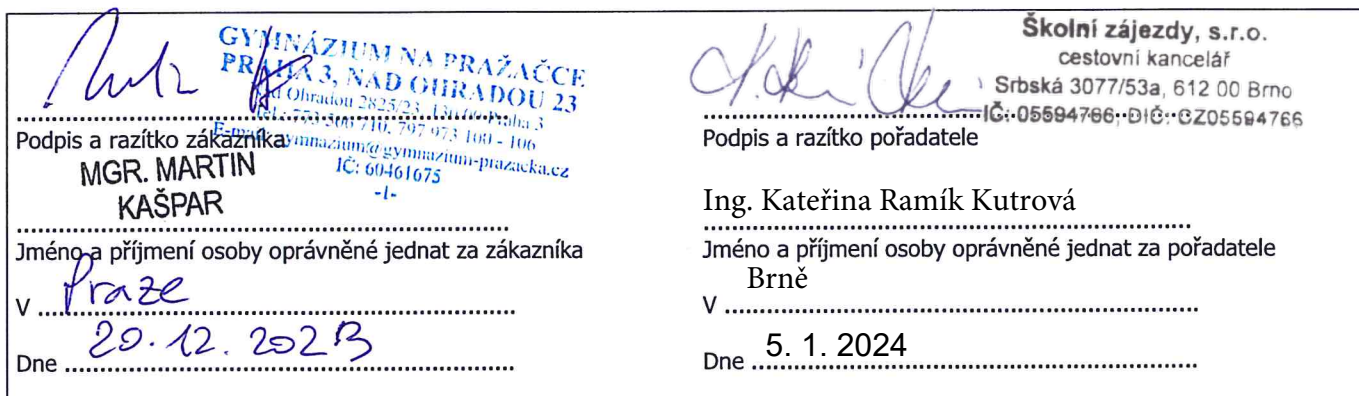 GYMNÁZIUM NA PRAŽAČCE
PRAHA 3, NAD OHRADOU 23
Nad Ohradou 2825/23, 130 00 Praha 3
tel.: 773 506 710, 797 973 100 - 106
E-mail: gymnazium@gymnazium-prazacka.cz
IČ: 60461675
-1-
Podpis a razítko zákazníka
MGR. MARTIN
KAŠPAR
Jméno a příjmení osoby oprávněné jednat za zákazníka
V Praze
Dne 20. 12. 2023
Školní zájezdy, s.r.o.
cestovní kancelář
Srbská 3077/53a, 612 00 Brno
IČ: 05594766, DIČ: CZ05594766
Podpis a razítko pořadatele
Ing. Kateřina Ramík Kutrová
Jméno a příjmení osoby oprávněné jednat za pořadatele
V Brně
Dne 5. 1. 2024